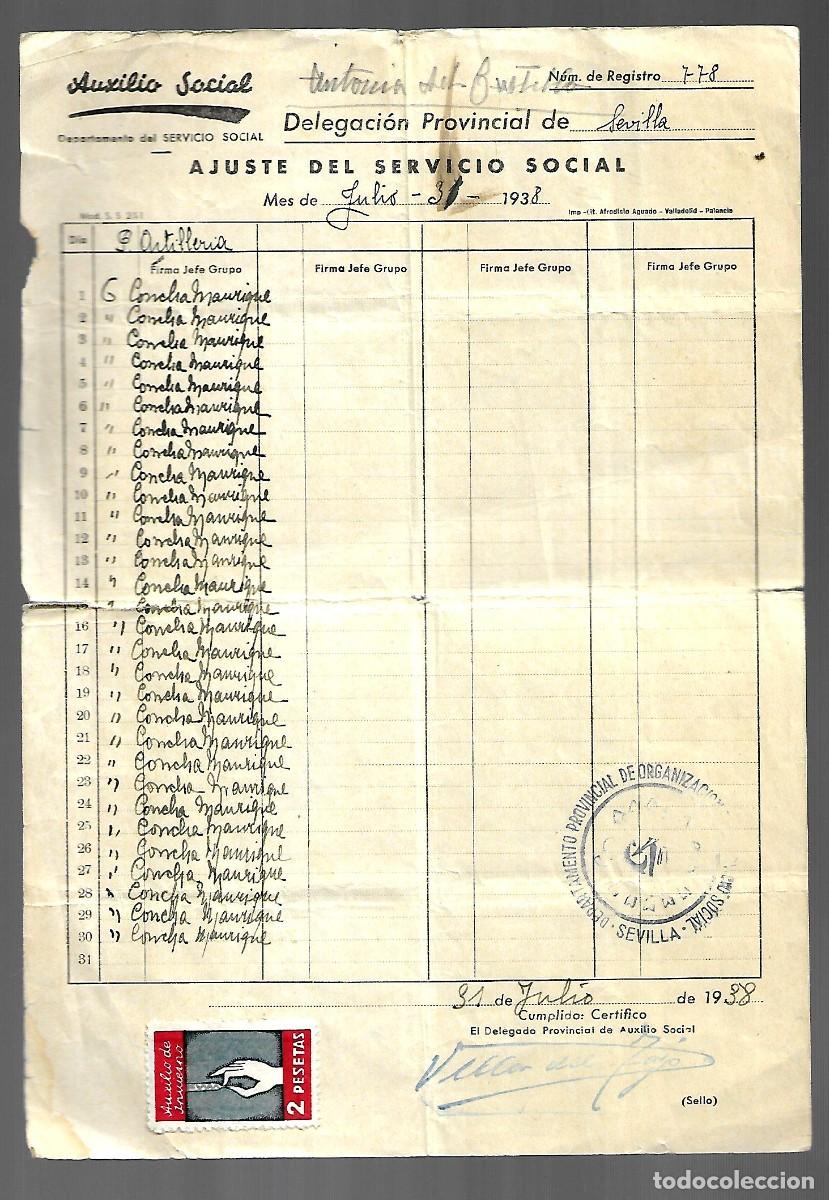 Auxilio Social
Antonia del
Núm. de Registro 778
Departamento del SERVICIO SOCIAL
Delegación Provincial de Sevilla
AJUSTE DEL SERVICIO SOCIAL
Mes de Julio - 31 - 1938
Mod. S. S 251
Imp.-Lit. Afrodisio Aguado - Valladolid - Palencia
Día P. Artilleria
Firma Jefe Grupo Firma Jefe Grupo Firma Jefe Grupo Firma Jefe Grupo
1 6 Concha Manrique
2 " Concha Manrique
3 " Concha Manrique
4 " Concha Manrique
5 " Concha Manrique
6 " Concha Manrique
7 " Concha Manrique
8 " Concha Manrique
9 " Concha Manrique
10 " Concha Manrique
11 " Concha Manrique
12 " Concha Manrique
13 " Concha Manrique
14 " Concha Manrique
15 " Concha Manrique
16 " Concha Manrique
17 " Concha Manrique
18 " Concha Manrique
19 " Concha Manrique
20 " Concha Manrique
21 " Concha Manrique
22 " Concha Manrique
23 " Concha Manrique
24 " Concha Manrique
25 " Concha Manrique
26 " Concha Manrique
27 " Concha Manrique
28 " Concha Manrique
29 " Concha Manrique
30 " Concha Manrique
31
DEPARTAMENTO PROVINCIAL DE ORGANIZACION
SOCIAL
· SEVILLA ·
31 de Julio de 1938
Cumplido: Certifico
El Delegado Provincial de Auxilio Social
(Sello)
Auxilio de
invierno
2 PESETAS
todocoleccion.net